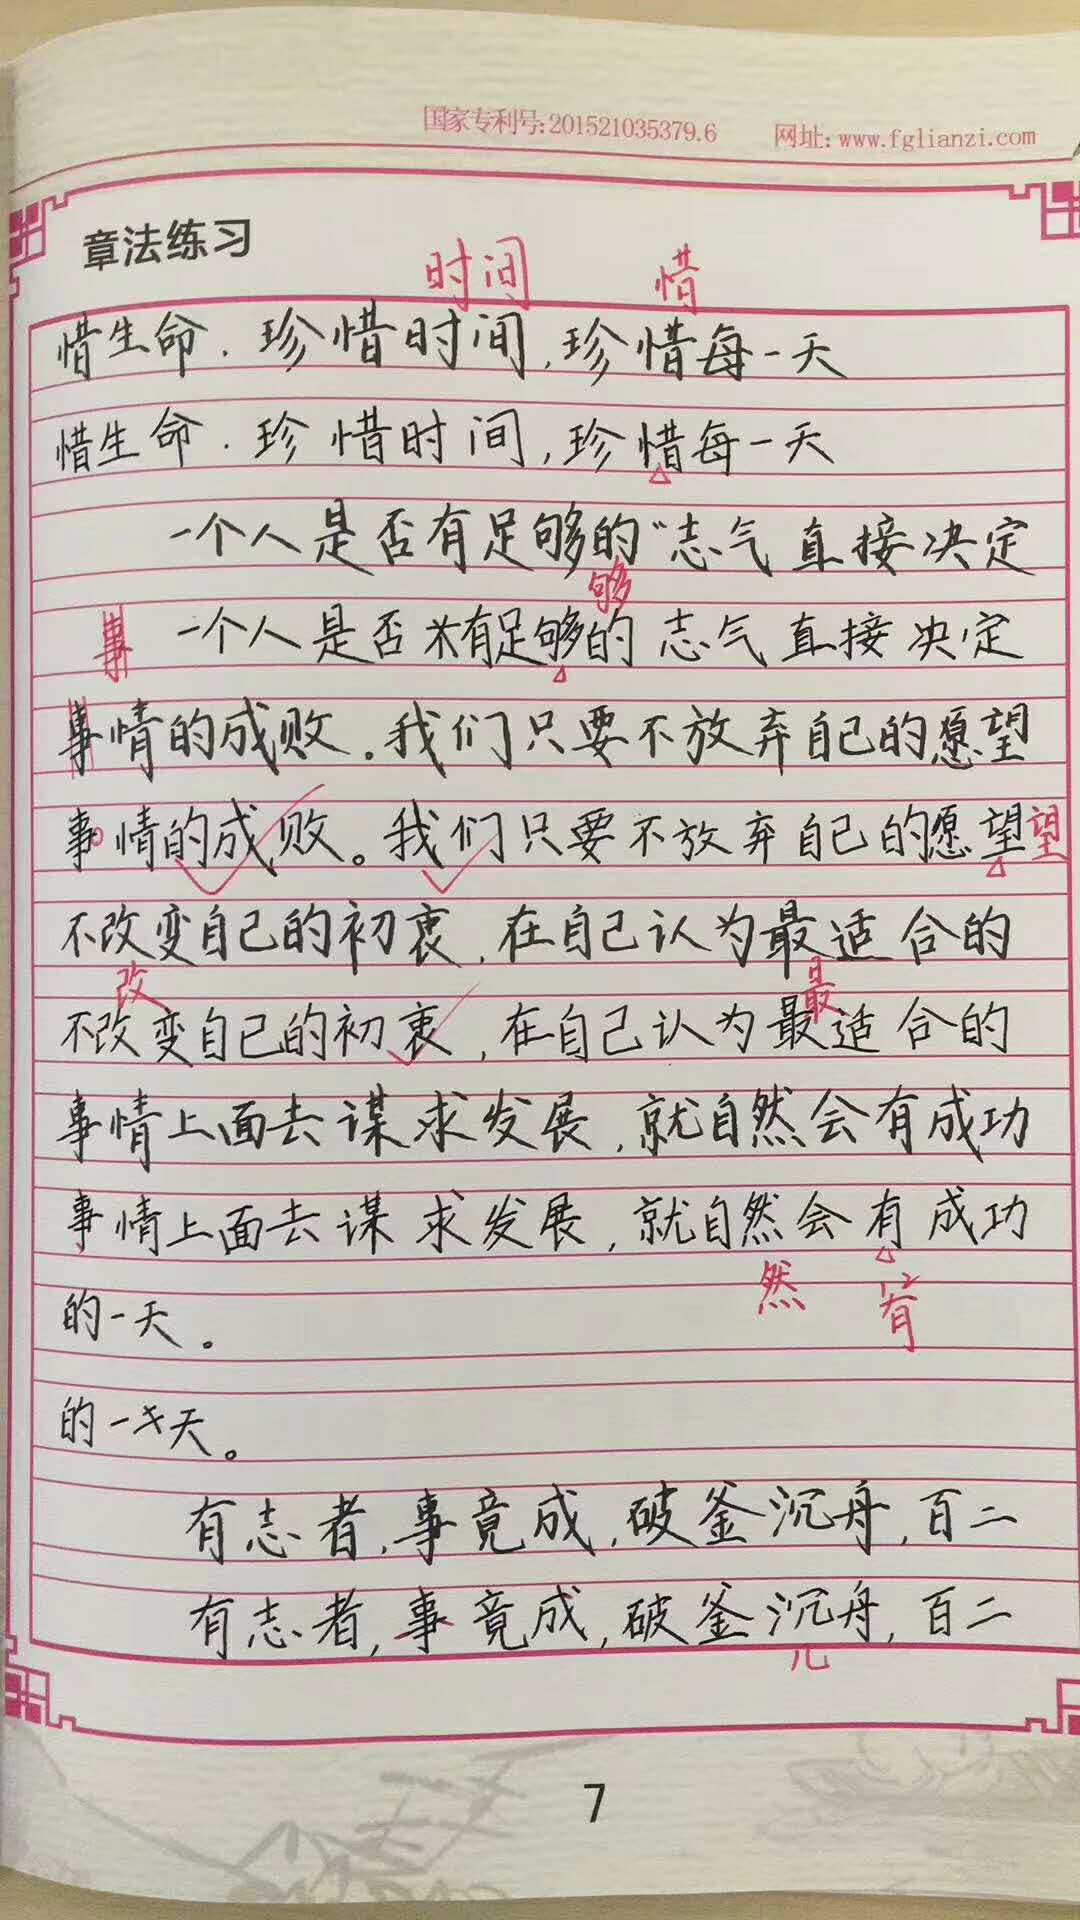 国家专利号:201521035379.6 网址: www.fglianzi.com
章法练习
时间 惜
惜生命.珍惜时间,珍惜每一天
惜生命.珍惜时间,珍惜每一天
一个人是否有足够的"志气直接决定
够
事 一个人是否有足够的志气直接决定
事情的成败。我们只要不放弃自己的愿望
事情的成败。我们只要不放弃自己的愿望望
不改变自己的初衷,在自己认为最适合的
改 最
不改变自己的初衷,在自己认为最适合的
事情上面去谋求发展,就自然会有成功
事情上面去谋求发展,就自然会有成功
然 有
的一天。
的一天。
有志者,事竟成,破釜沉舟,百二
有志者,事竟成,破釜沉舟,百二
几
7